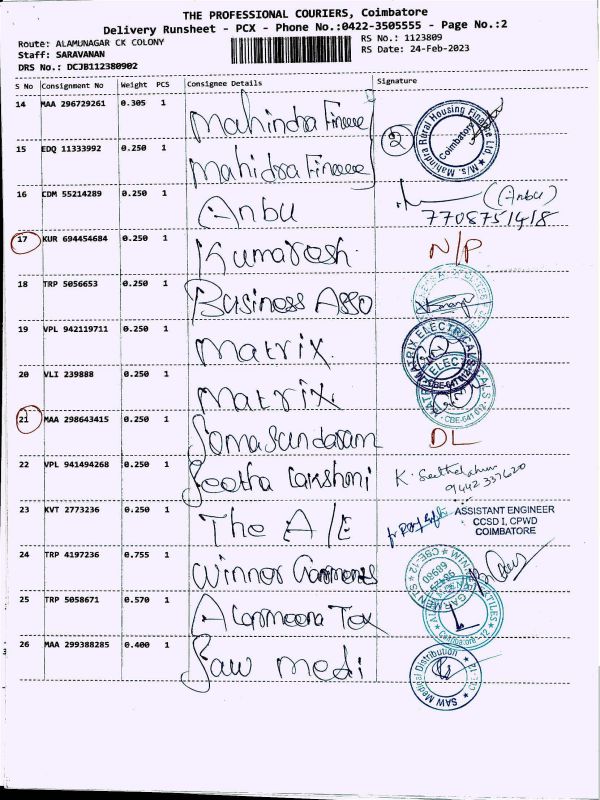 THE PROFESSIONAL COURIERS, Coimbatore
Delivery Runsheet - PCX - Phone No.:0422-3505555 - Page No.:2
Route: ALAMUNAGAR CK COLONY RS No.: 1123809
Staff: SARAVANAN RS Date: 24-Feb-2023
DRS No.: DCJB112380902
S No Consignment No Weight PCS Consignee Details Signature
14 MAA 296729261 0.305 1 Mahindra Finance
15 EDQ 11333992 0.250 1 Mahidra Finance 2 M/s. Mahindra Rural Housing Finance Ltd. Coimbatore
16 CDM 55214289 0.250 1 Anbu (Anbu)
7708751418
17 KUR 694454684 0.250 1 Kumaresh N/P
18 TRP 5056653 0.250 1 Business Asso
19 VPL 942119711 0.250 1 Matrix MATRIX ELECTRICALS CBE-641 012
20 VLI 239888 0.250 1 Matrix MATRIX ELECTRICALS CBE-641 012
21 MAA 298643415 0.250 1 Somasundaram DL
22 VPL 941494268 0.250 1 Seetha Lakshmi K. Seethalakshmi
9442337620
23 KVT 2773236 0.250 1 The A/E ASSISTANT ENGINEER
CCSD I, CPWD
COIMBATORE
24 TRP 4197236 0.755 1 Winner Garments GARMENTS CBE-12
25 TRP 5058671 0.570 1 Alarmeera Tex Coimbatore-12
26 MAA 299388285 0.400 1 Saw Medi SAW Medical Distribution